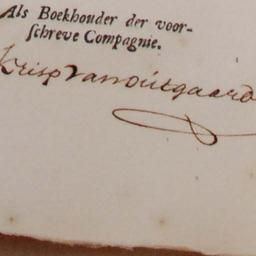 Als Boekhouder der voor-
schreve Compagnie.
Krisp van outgaard